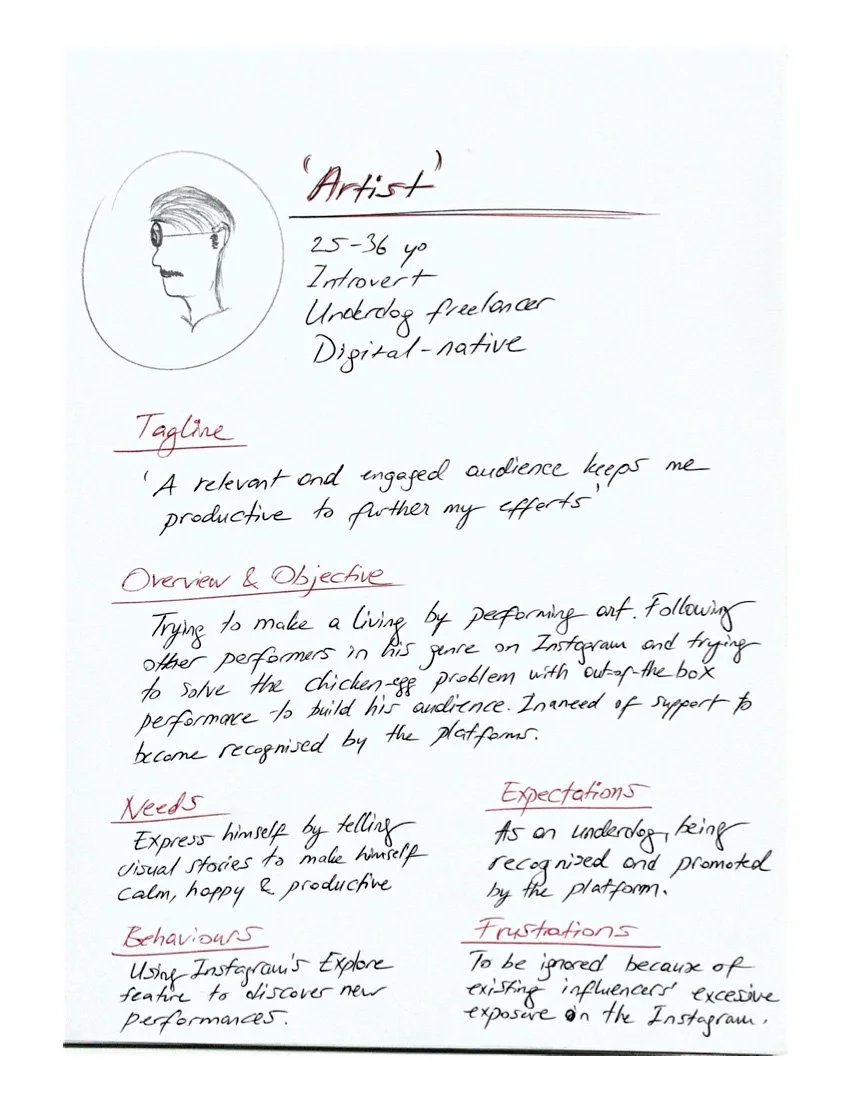 'Artist'
25-36 yo
Introvert
Underdog freelancer
Digital-native
Tagline
'A relevant and engaged audience keeps me
productive to further my efforts'
Overview & Objective
Trying to make a living by performing art. Following
other performers in his genre on Instagram and trying
to solve the chicken-egg problem with out-of-the box
performance to build his audience. In a need of support to
become recognised by the platforms.
Needs
Express himself by telling
visual stories to make himself
calm, happy & productive
Expectations
As an underdog, being
recognized and promoted
by the platform.
Behaviours
Using Instagram's Explore
feature to discover new
performances.
Frustrations
To be ignored because of
existing influencers' excesive
exposure on the Instagram.